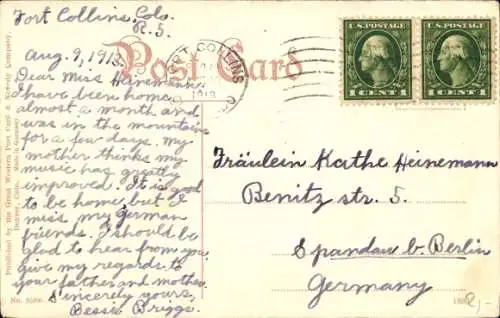 Fort Collins, Colo.
R. 5.
Aug. 9, 1913.
Post Card
FORT COLLINS
1913
U.S. POSTAGE
1 CENT 1
U.S. POSTAGE
1 CENT 1
Dear Miss Heinemann
I have been home
almost a month and
was in the mountains
for a few days. My
mother thinks my
music has greatly
improved. It is good
to be home, but I
miss my German
friends. I should be
glad to hear from you,
give my regards to
your father and mother.
Sincerely yours,
Bessie Briggs.
Fräulein Kathe Heinemann
Benitz str. 5.
Spandau b. Berlin
Germany
Published by the Great Western Post Card & Novelty Company,
Denver, Colo. Made in Germany